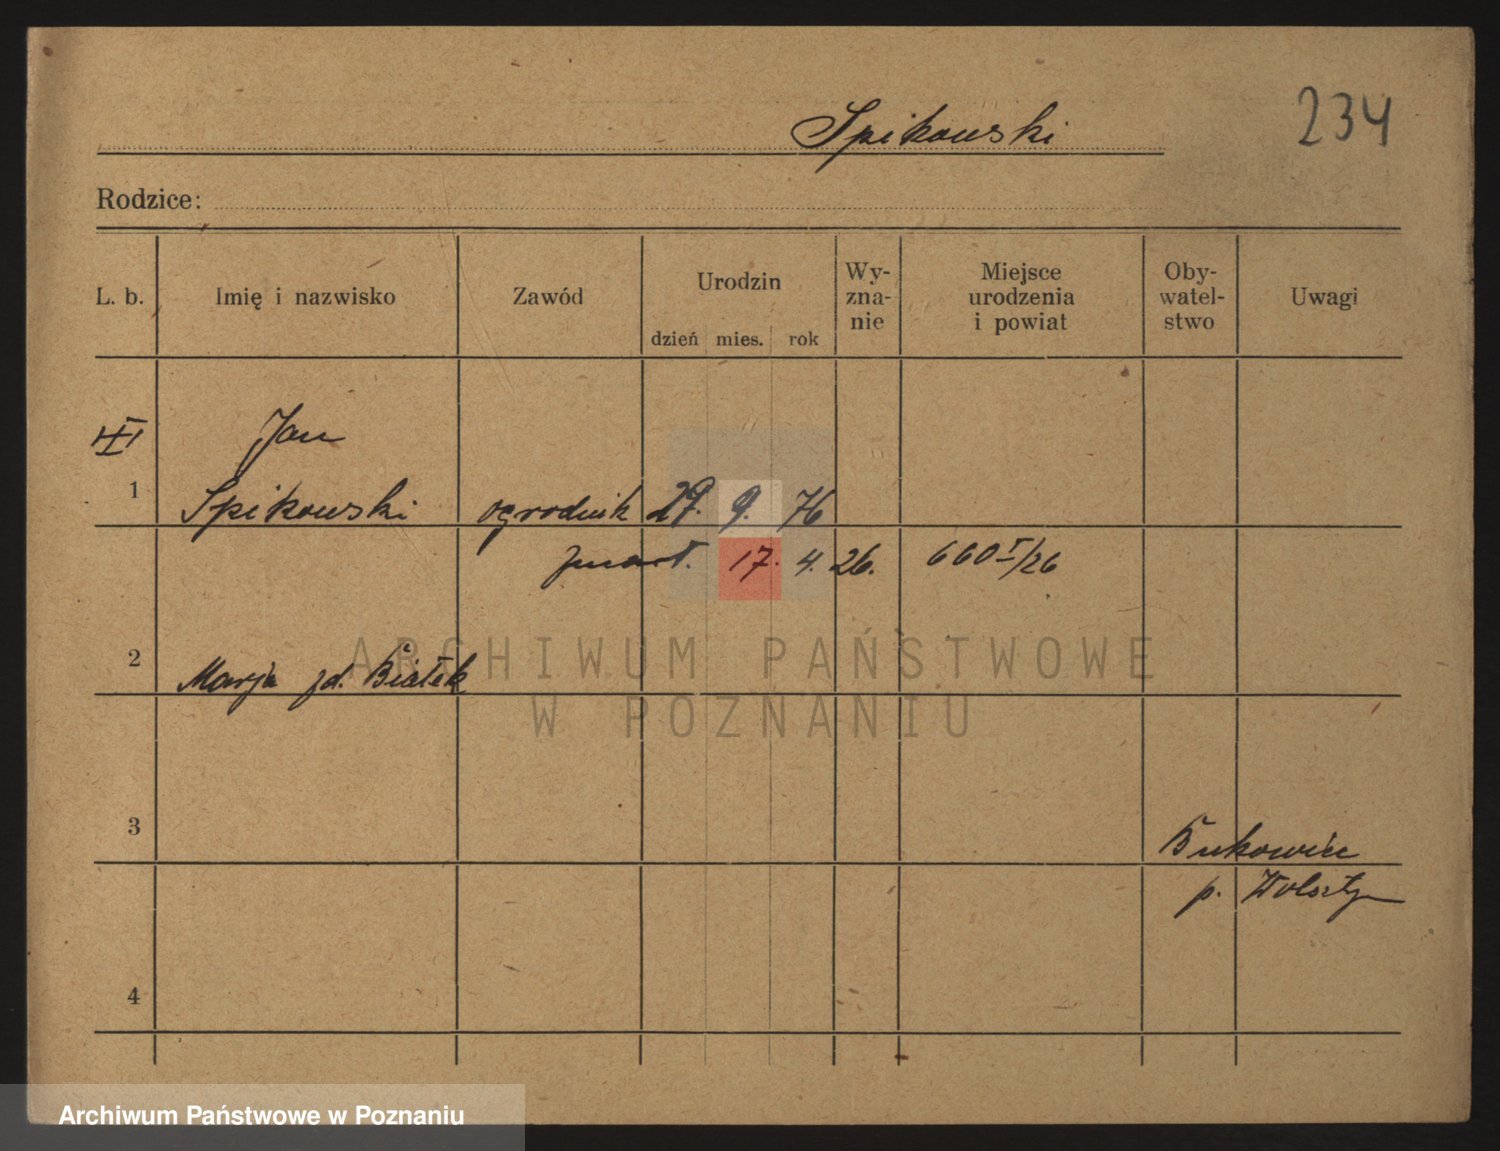 Spikowski
234
Rodzice:
L. b.
Imię i nazwisko
Zawód
Urodzin
dzień mies. rok
Wy-
zna-
nie
Miejsce
urodzenia
i powiat
Oby-
watel-
stwo
Uwagi
Jan
1
Spikowski ogrodnik 29. 9. 76
zmarł. 17. 4. 26. 660 I/26
2
Marja zd. Białek
ARCHIWUM PAŃSTWOWE
W POZNANIU
3
Bukowiec
p. Wolsztyn
4
Archiwum Państwowe w Poznaniu